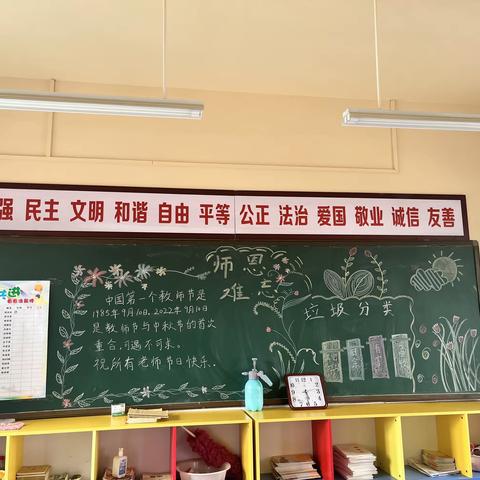 强 民主 文明 和谐 自由 平等 公正 法治 爱国 敬业 诚信 友善
师恩
难忘
中国第一个教师节是
1985年9月10日,2022年9月10日
是教师节与中秋节的首次
重合,可遇不可求。
祝所有老师节日快乐。
垃圾分类